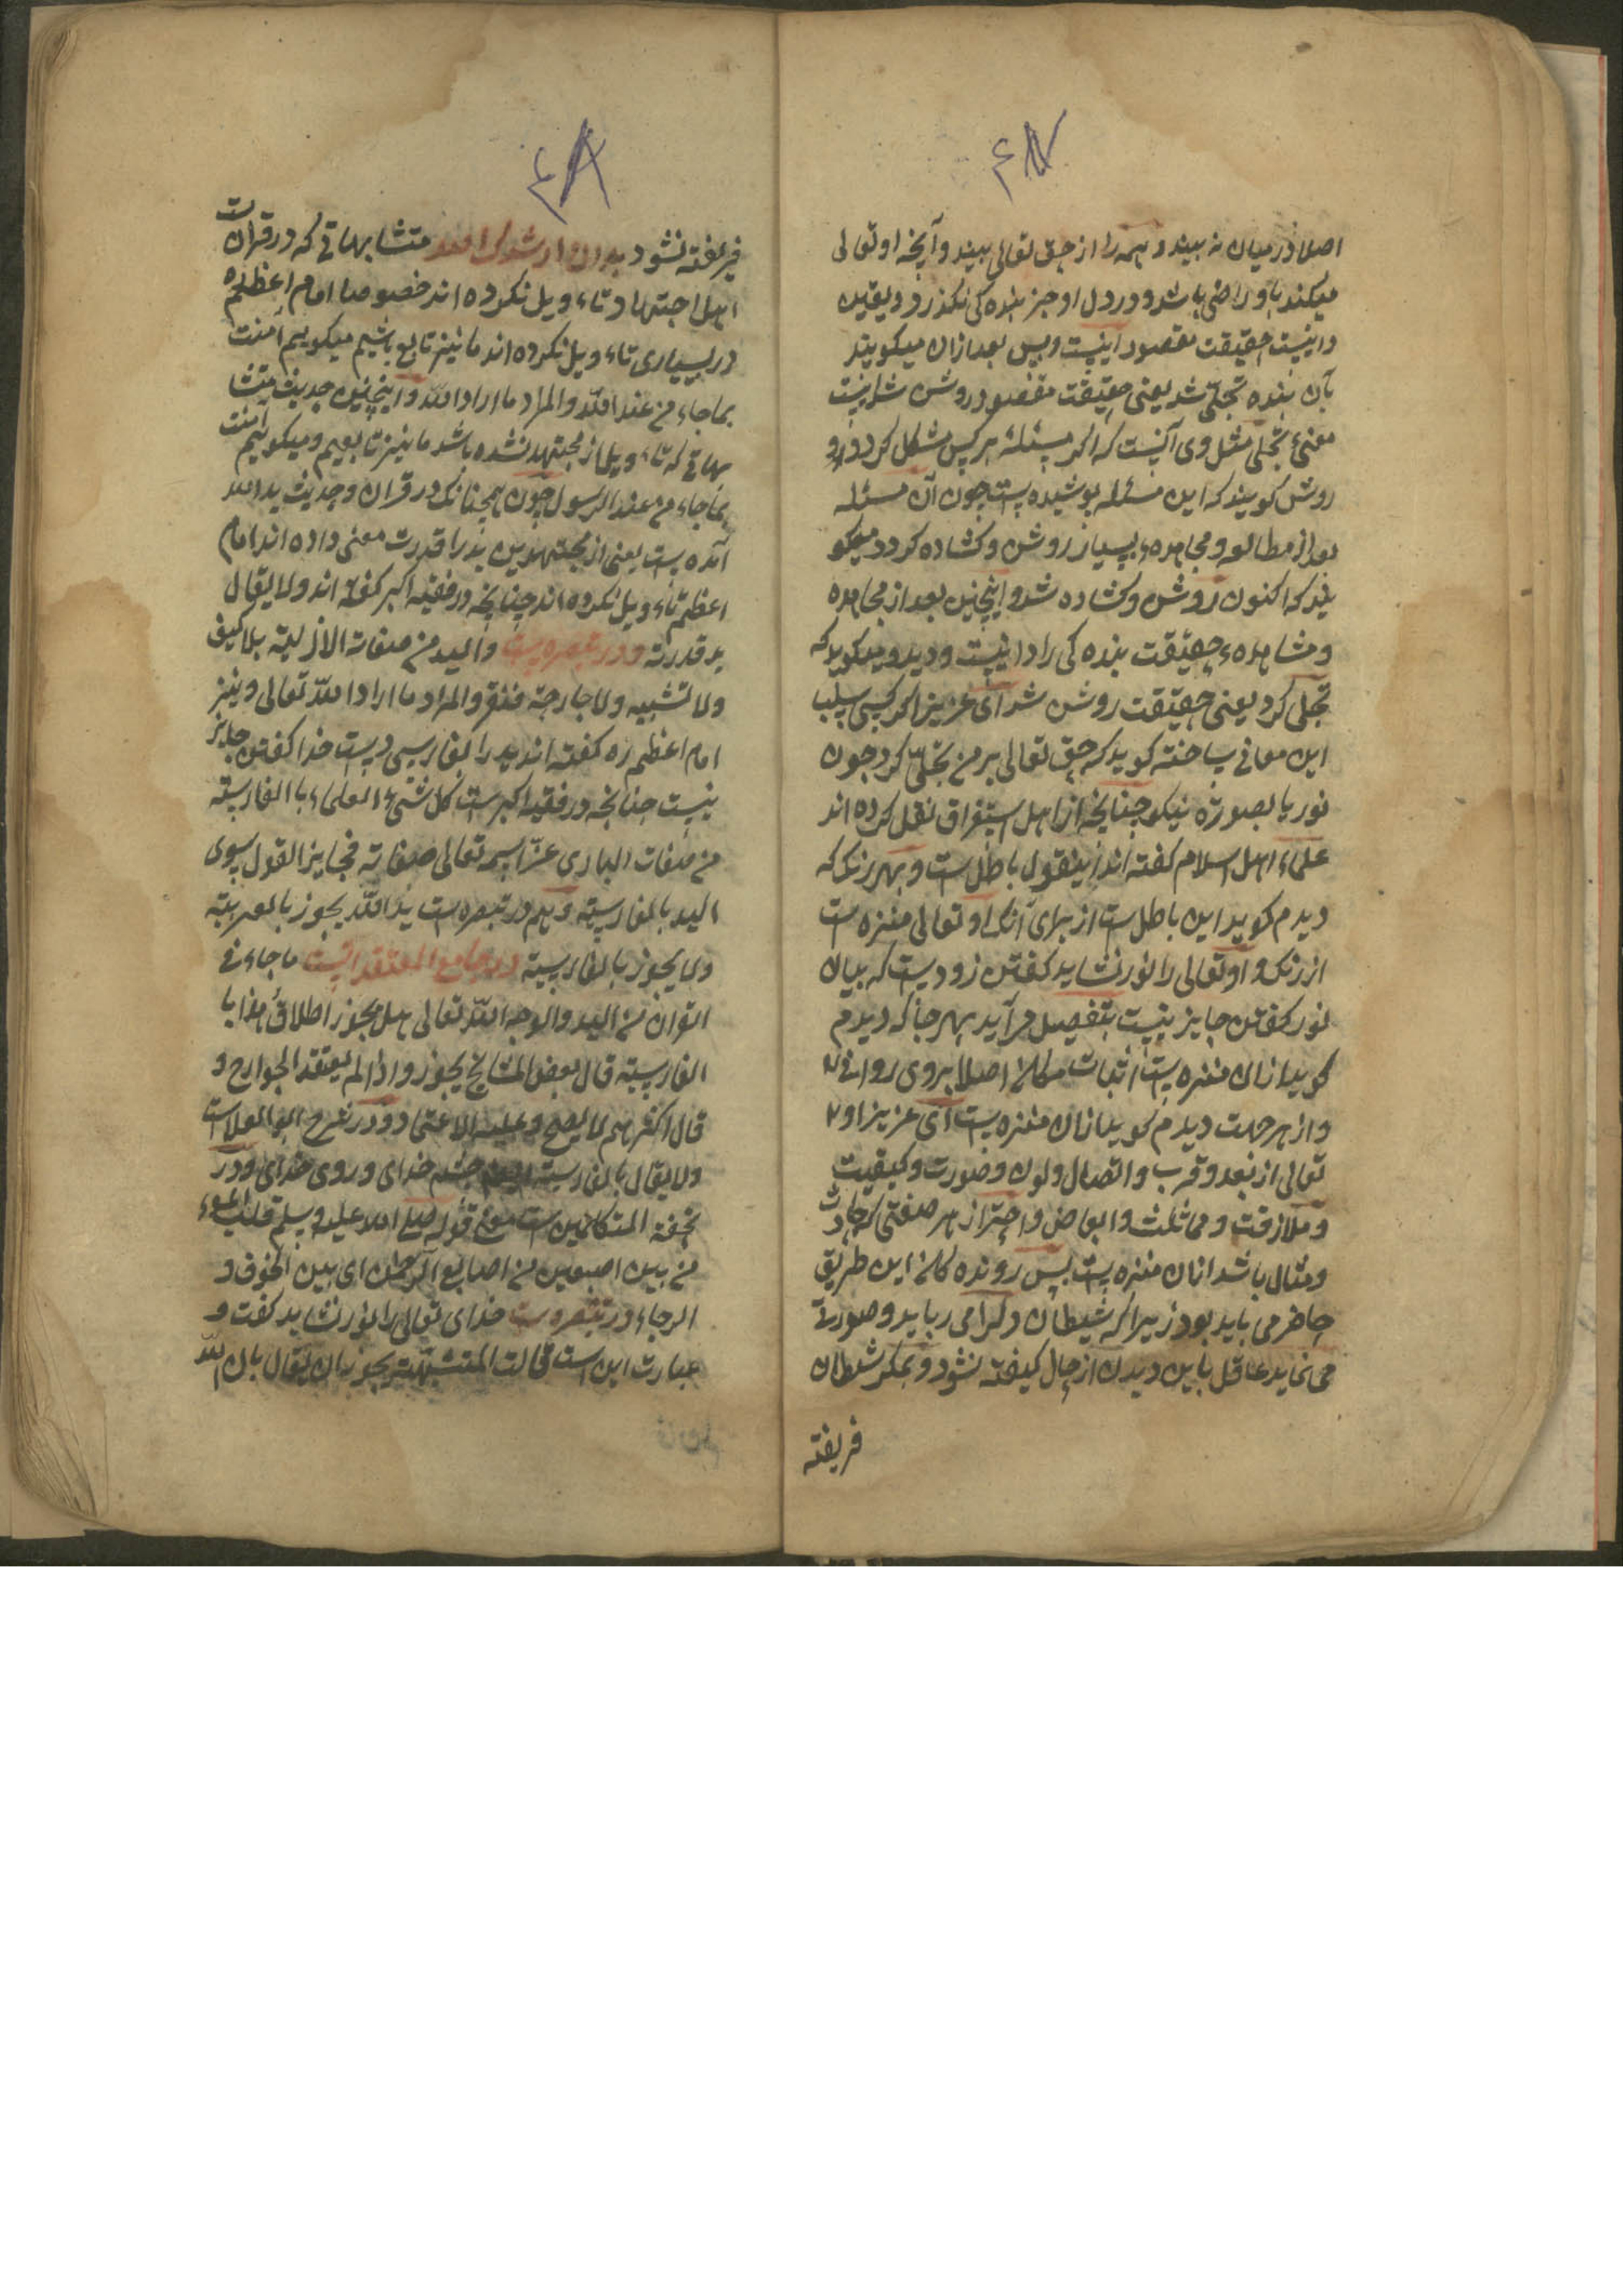 ۴۷
اصلا در میان نه بیند و همه را از حق تعالی بیند و آنچه او تعالی
میکند باو راضی باشد و در دل او جز بنده کی نگذرد و یقین
دانیست حقیقت مقصود اینست و بس بعد ازان میکویند
بآن بنده تجلّی شد یعنی حقیقت مقصود روشن شد اینست
معنیٔ تجلی مثل وی آنست که اگر مسئله بر کس مشکل کردد
روشن کویند که این مسئله پوشیده است چون آن مسئله
بعد از مطالعه و مجاهدهء بسیار روشن و کشاده کردد میکو
یند که اکنون روشن و کشاده شد و اینچنین بعد از مجاهده
و مشاهدهء حقیقت بنده کی را دانیست و دید و میکوید که
تجلی کرد یعنی حقیقت روشن شد ای عزیز اگر کسی سلب
این معانی ساخته کوید که حق تعالی بر من تجلّی کرد چون
نور یا بصورة نیکو چنانچه از اهل استغراق نقل کرده اند
علماء اهل اسلام کفته اند اینقول باطل است و بهر رنک که
دیدم کوید این باطل است از برای آنک او تعالی منزه ست
از رنک و او تعالی را نور نشاید کفتن زود یست که بیان
نور کفتن جایز نیست بتفصیل در آید بهر جا که دیدم
کوید ازان منزه یست اثبات مکان اصلا بروی روا نی
و از هر جهت دیدم کوید ازان منزه یست ای عزیز او
تعالی از بعد و قرب و اتصال و لون و صورت و کیفیت
و ملازقت و مماثلت و ابعاض و احتراز هر صفتی که حادث
و مثال باشد ازان منزه یست پس رونده کان این طریق
حاضر می باید بود زیرا که شیطان دکرامی رباید و صورت
می نماید عاقل باین دیدن از حال کیفته نشود و بمکر شیطان
فریفته
۴۸
فریفته نشود متشابهاتی که در قران ست
اهل اجتهاد تاءویل نکرده اند خصوصا امام اعظم ره
در بسیاری تاءویل نکرده اند ما نیز تابع باشیم میکوییم آمنت
بما جاء من عند الله والمراد ما اراد الله و اینچنین حدیث متشا
بهاتی که تاءویل از مجتهد نشده باشد ما نیز تابعیم و میکوییم امنت
بما جاء من عند الرسول چون همچنانک در قران و حدیث ید الله
آمده یست بعنی از مجتهدین ید را قدرت معنی داده اند امام
اعظم تاءویل نکرده اند چنانچه در فقیه اکبر کفته اند ولا یقال
ید قدرته و در تبصره یست والید من صفات الازلیة بلا کیف
ولا تشبیه ولا جارحة فنقر والمراد ما اراد الله تعالی و نیز
امام اعظم ره کفته اند ید را بفارسی دست خدا کفتن جایز
نیست چنانچه در فقیه اکبر ست کل شیء العلماء با الفارسیّه
من صفات الباری عزّ اسمه تعالی صفاته فجایز القول سوی
الید بالفارسیّه و هم در تبصره ست ید الله یجوز بالعربیّه
ولا یجوز بالفارسیّة و در جامع المعتقد اتست ما جاء فی
القران من الید والوجه الله تعالی هل یجوز اطلاق هذا با
الفارسیّه قال بعض المشایخ یجوز و اذا لم یعتقد الجوارح و
قال اکثرهم لا یصح وعلیه الاعتماد و در شرح ابو العلاست
ولا یقال بالفارسیّة چشم خدای و روی خدای و در
تحفة المتکلمین ست معنی قوله صلی الله علیه وسلم قلب المؤء
من بین اصبعین من اصابع الرحمن ای بین الخوف و
الرجاء و در تبصره ست خدای تعالی را نور نشاید کفت و
عبارت این ست قالت المتشبّهة یجوز ان یقال بان الله